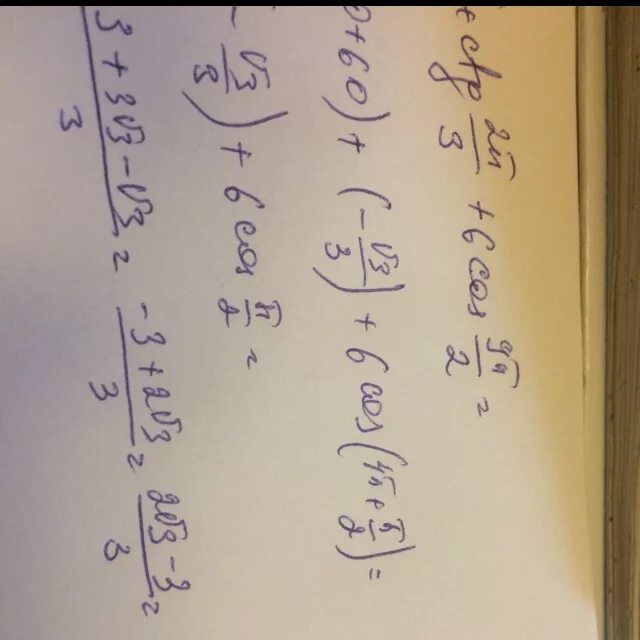 + ctg 2π/3 + 6 cos 9π/2 =
0 + 60) + (-√3/3) + 6 cos(4π + π/2) =
- √3/3) + 6 cos π/2 =
3 + 3√3 - √3/3 = -3 + 2√3/3 = 2√3 - 3/3 =